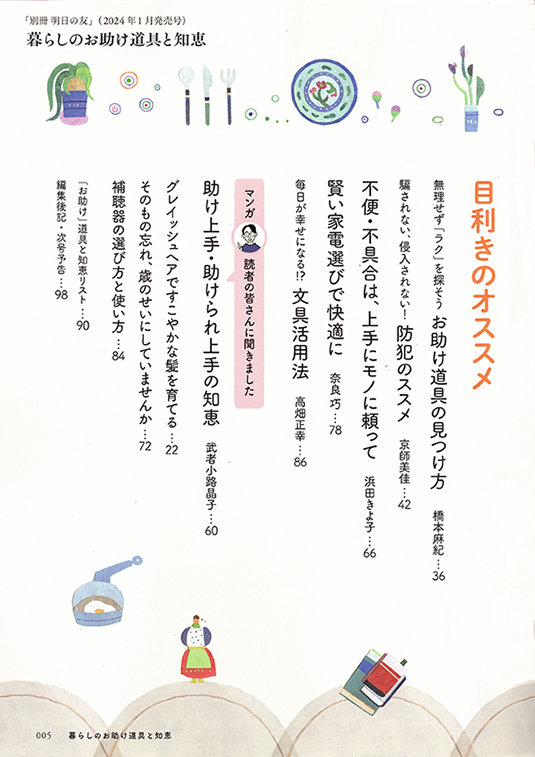 「別冊 明日の友」（2024年1月発売号）
暮らしのお助け道具と知恵
目利きのオススメ
無理せず「ラク」を探そう お助け道具の見つけ方 橋本麻紀…36
騙されない、侵入されない！ 防犯のススメ 京師美佳…42
不便・不具合は、上手にモノに頼って 浜田きよ子…66
賢い家電選びで快適に 奈良巧…78
毎日が幸せになる!? 文具活用法 高畑正幸…86
マンガ 読者の皆さんに聞きました
助け上手・助けられ上手の知恵 武者小路晶子…60
グレイッシュヘアですこやかな髪を育てる…22
そのもの忘れ、歳のせいにしていませんか…72
補聴器の選び方と使い方…84
「お助け」道具と知恵リスト…90
編集後記・次号予告…98
005 暮らしのお助け道具と知恵